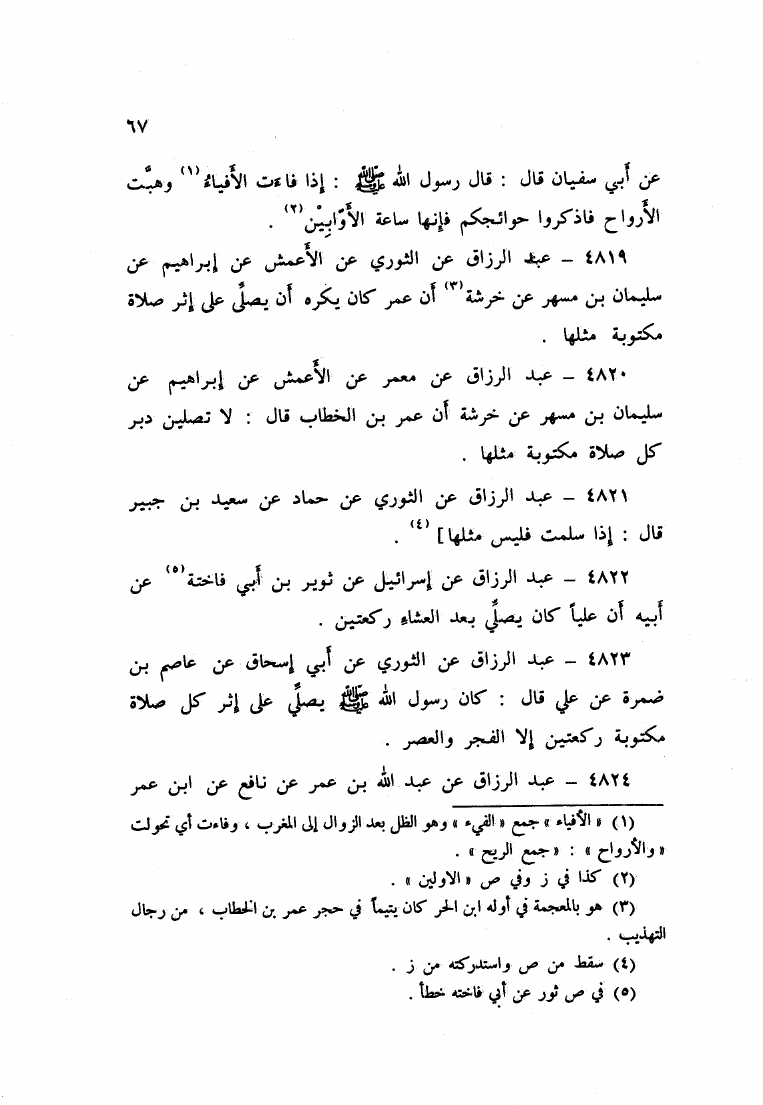 ٦٧
عن أبي سفيان قال : قال رسول الله ﷺ : إذا فاءت الأَفياءُ(١) وهبَّت
الأَرواح فاذكروا حوائجكم فإنها ساعة الأَوَّابِيْن(٢) .
٤٨١٩ – عبد الرزاق عن الثوري عن الأَعمش عن إبراهيم عن
سليمان بن مسهر عن خرشة(٣) أن عمر كان يكره أن يصلِّى على إثر صلاة
مكتوبة مثلها .
٤٨٢٠ – عبد الرزاق عن معمر عن الأَعمش عن إبراهيم عن
سليمان بن مسهر عن خرشة أن عمر بن الخطاب قال : لا تصلين دبر
كل صلاة مكتوبة مثلها .
٤٨٢١ – عبد الرزاق عن الثوري عن حماد عن سعيد بن جبير
قال : إذا سلمت فليس مثلها ](٤) .
٤٨٢٢ – عبد الرزاق عن إسرائيل عن ثوير بن أبي فاختة(٥) عن
أبيه أن علياً كان يصلِّي بعد العشاء ركعتين .
٤٨٢٣ – عبد الرزاق عن الثوري عن أبي إسحاق عن عاصم بن
ضمرة عن علي قال : كان رسول الله ﷺ يصلِّي على إثر كل صلاة
مكتوبة ركعتين إلا الفجر والعصر .
٤٨٢٤ – عبد الرزاق عن عبد الله بن عمر عن نافع عن ابن عمر
(١) « الأفياء » جمع « الفيء » وهو الظل بعد الزوال إلى المغرب ، وفاءت أي تحولت
« والأرواح » : « جمع الريح » .
(٢) كذا في ز وفي ص « الاولين » .
(٣) هو بالمعجمة في أوله ابن الحر كان يتيماً في حجر عمر بن الخطاب ، من رجال
التهذيب .
(٤) سقط من ص واستدركته من ز .
(٥) في ص ثور عن أبي فاخته خطأ .